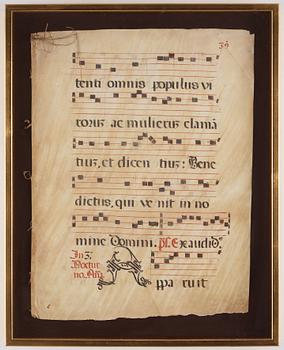 39
tenti omnis populus vi
torus ac mulierus clamā
tius, et dicen tius: Bene
dictus, qui ve nit in no
mine Domini. ps. Exaudið.
In 3.
Noctur
no, Añā. A ppa ruit